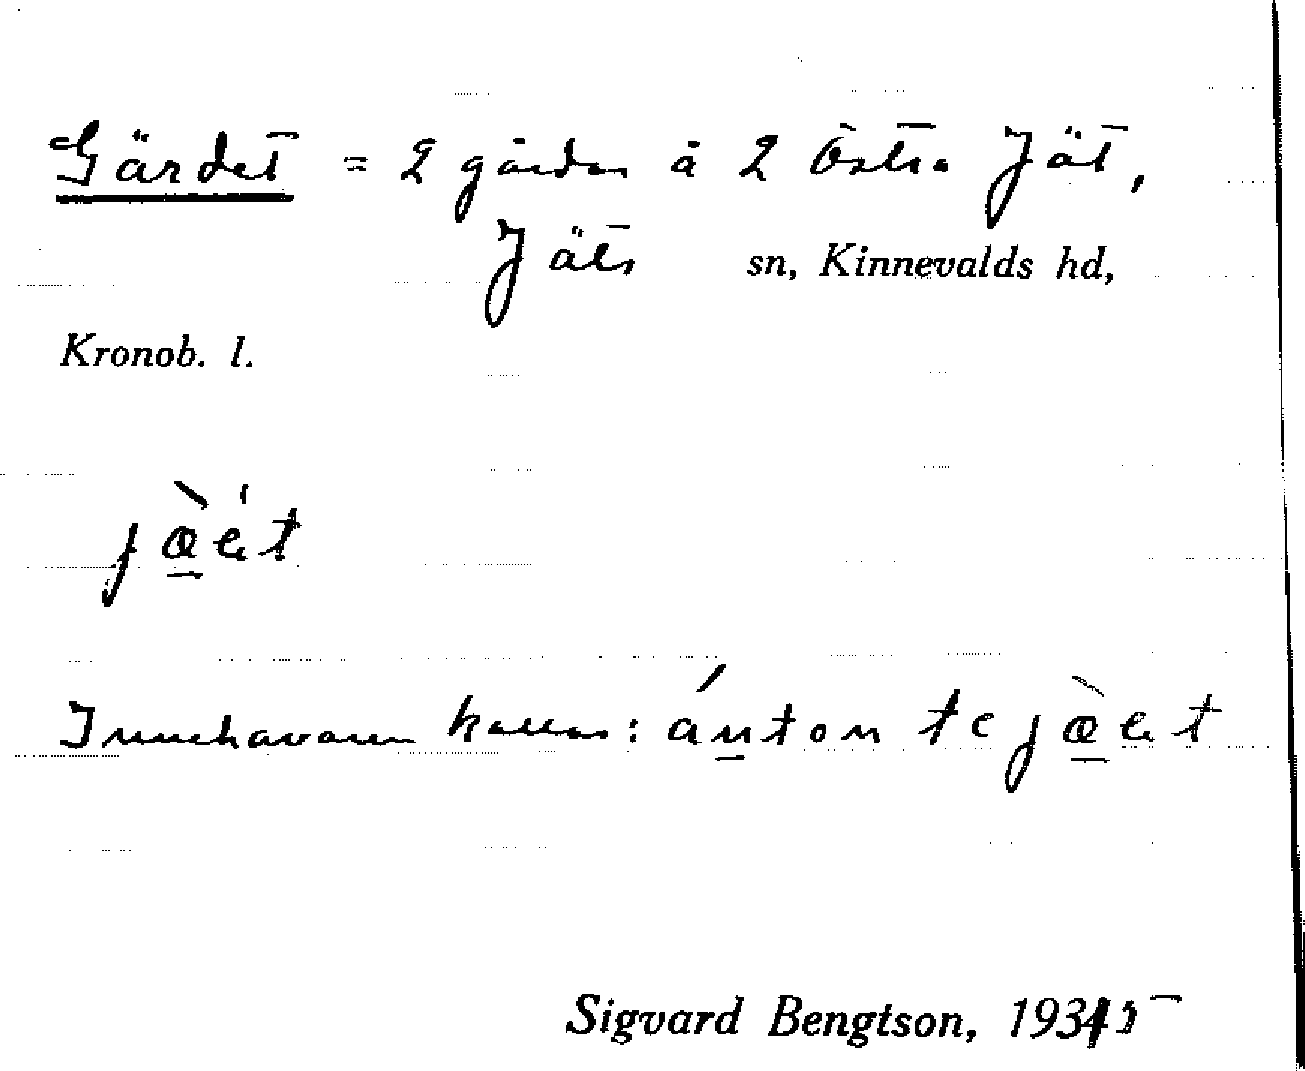 Gärdet = 2 gårdar å 2 Östra Jät,
Jäts sn, Kinnevalds hd,
Kronob. l.
jæ̀ét
Innehavaren kallas: ánton te jæ̀et
Sigvard Bengtson, 1935